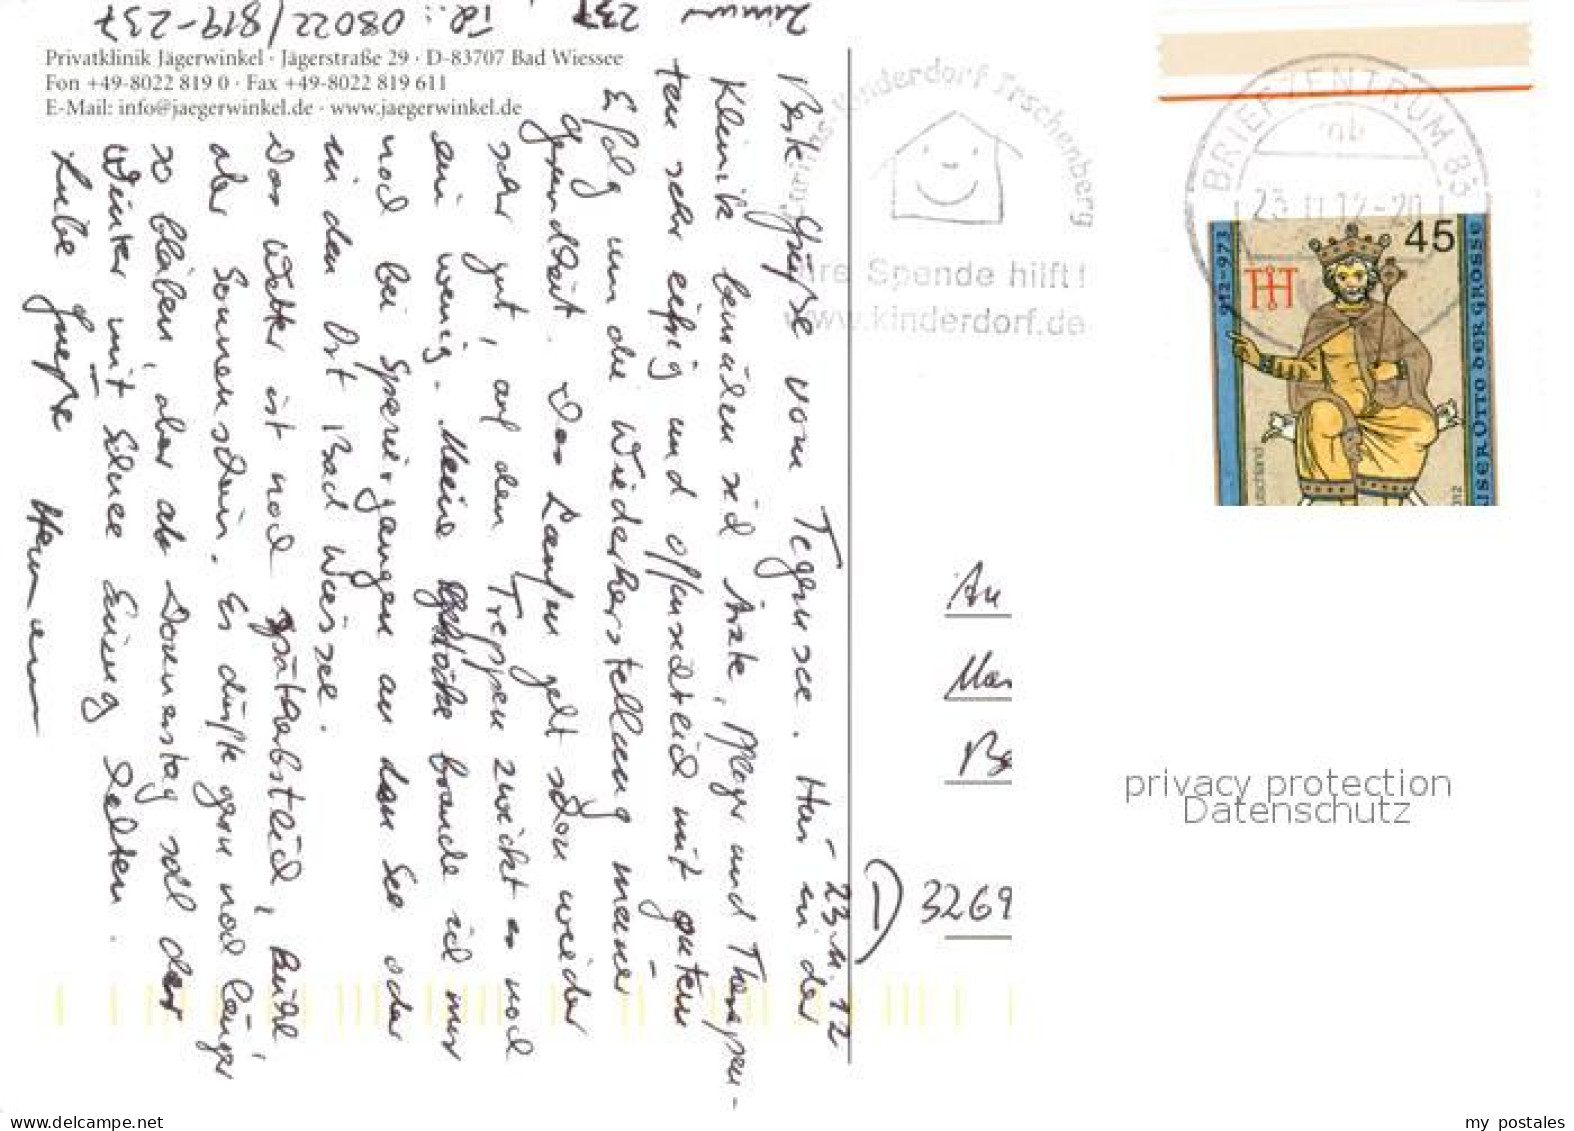 Zimmer 237 Tel.: 08022/819-237
Privatklinik Jägerwinkel · Jägerstraße 29 · D-83707 Bad Wiessee
Fon +49-8022 819 0 · Fax +49-8022 819 611
E-Mail: info@jaegerwinkel.de · www.jaegerwinkel.de
23.11.12
Beste Grüße vom Tegernsee. Hier in der
Klinik bemühen sich Ärzte, Pfleger und Therapeu-
ten sehr eifrig und offensichtlich mit gutem
Erfolg um die Wiederherstellung meiner
Gesundheit. Das Laufen geht schon wieder
sehr gut, auf den Treppen zwickt es noch
ein wenig. Meine Gehstöcke brauche ich nur
noch bei Spaziergängen an den See oder
in den Ort Bad Wiessee.
Das Wetter ist noch spätherbstlich, kühl
aber Sonnenschein. Es dürfte gern noch länger
so bleiben, aber ab Donnerstag soll der
Winter mit Schnee Einzug halten.
Liebe Grüße
Hermann
Caritas-Kinderdorf Irschenberg
Ihre Spende hilft!
www.kinderdorf.de
BRIEFZENTRUM 83
mb
23.11.12-20
45
912-973
KAISER OTTO DER GROSSE
Deutschland
2012
An
Be
D 3269
privacy protection
Datenschutz
my postales
www.delcampe.net